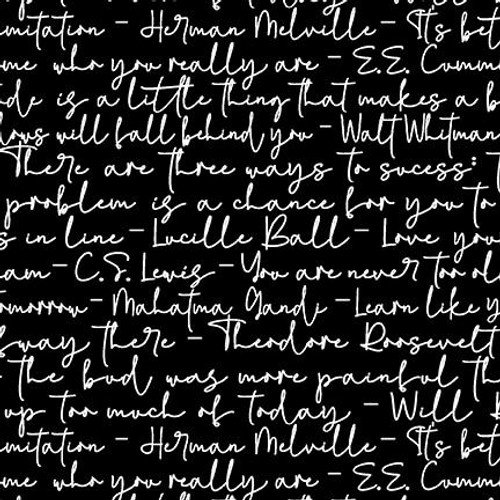 imitation - Herman Melville - It's bet
ome who you really are - E.E. Cumm
ude is a little thing that makes a b
dows will fall behind you - Walt Whitman
There are three ways to sucess: T
problem is a chance for you to
s in line - Lucille Ball - Love you
am - C.S. Lewis - You are never too ol
omorrow - Mahatma Gandi - Learn like y
fway there - Theodore Roosevelt
- the bud was more painful th
up too much of today - Will R
imitation - Herman Melville - It's bet
ome who you really are - E.E. Cumm